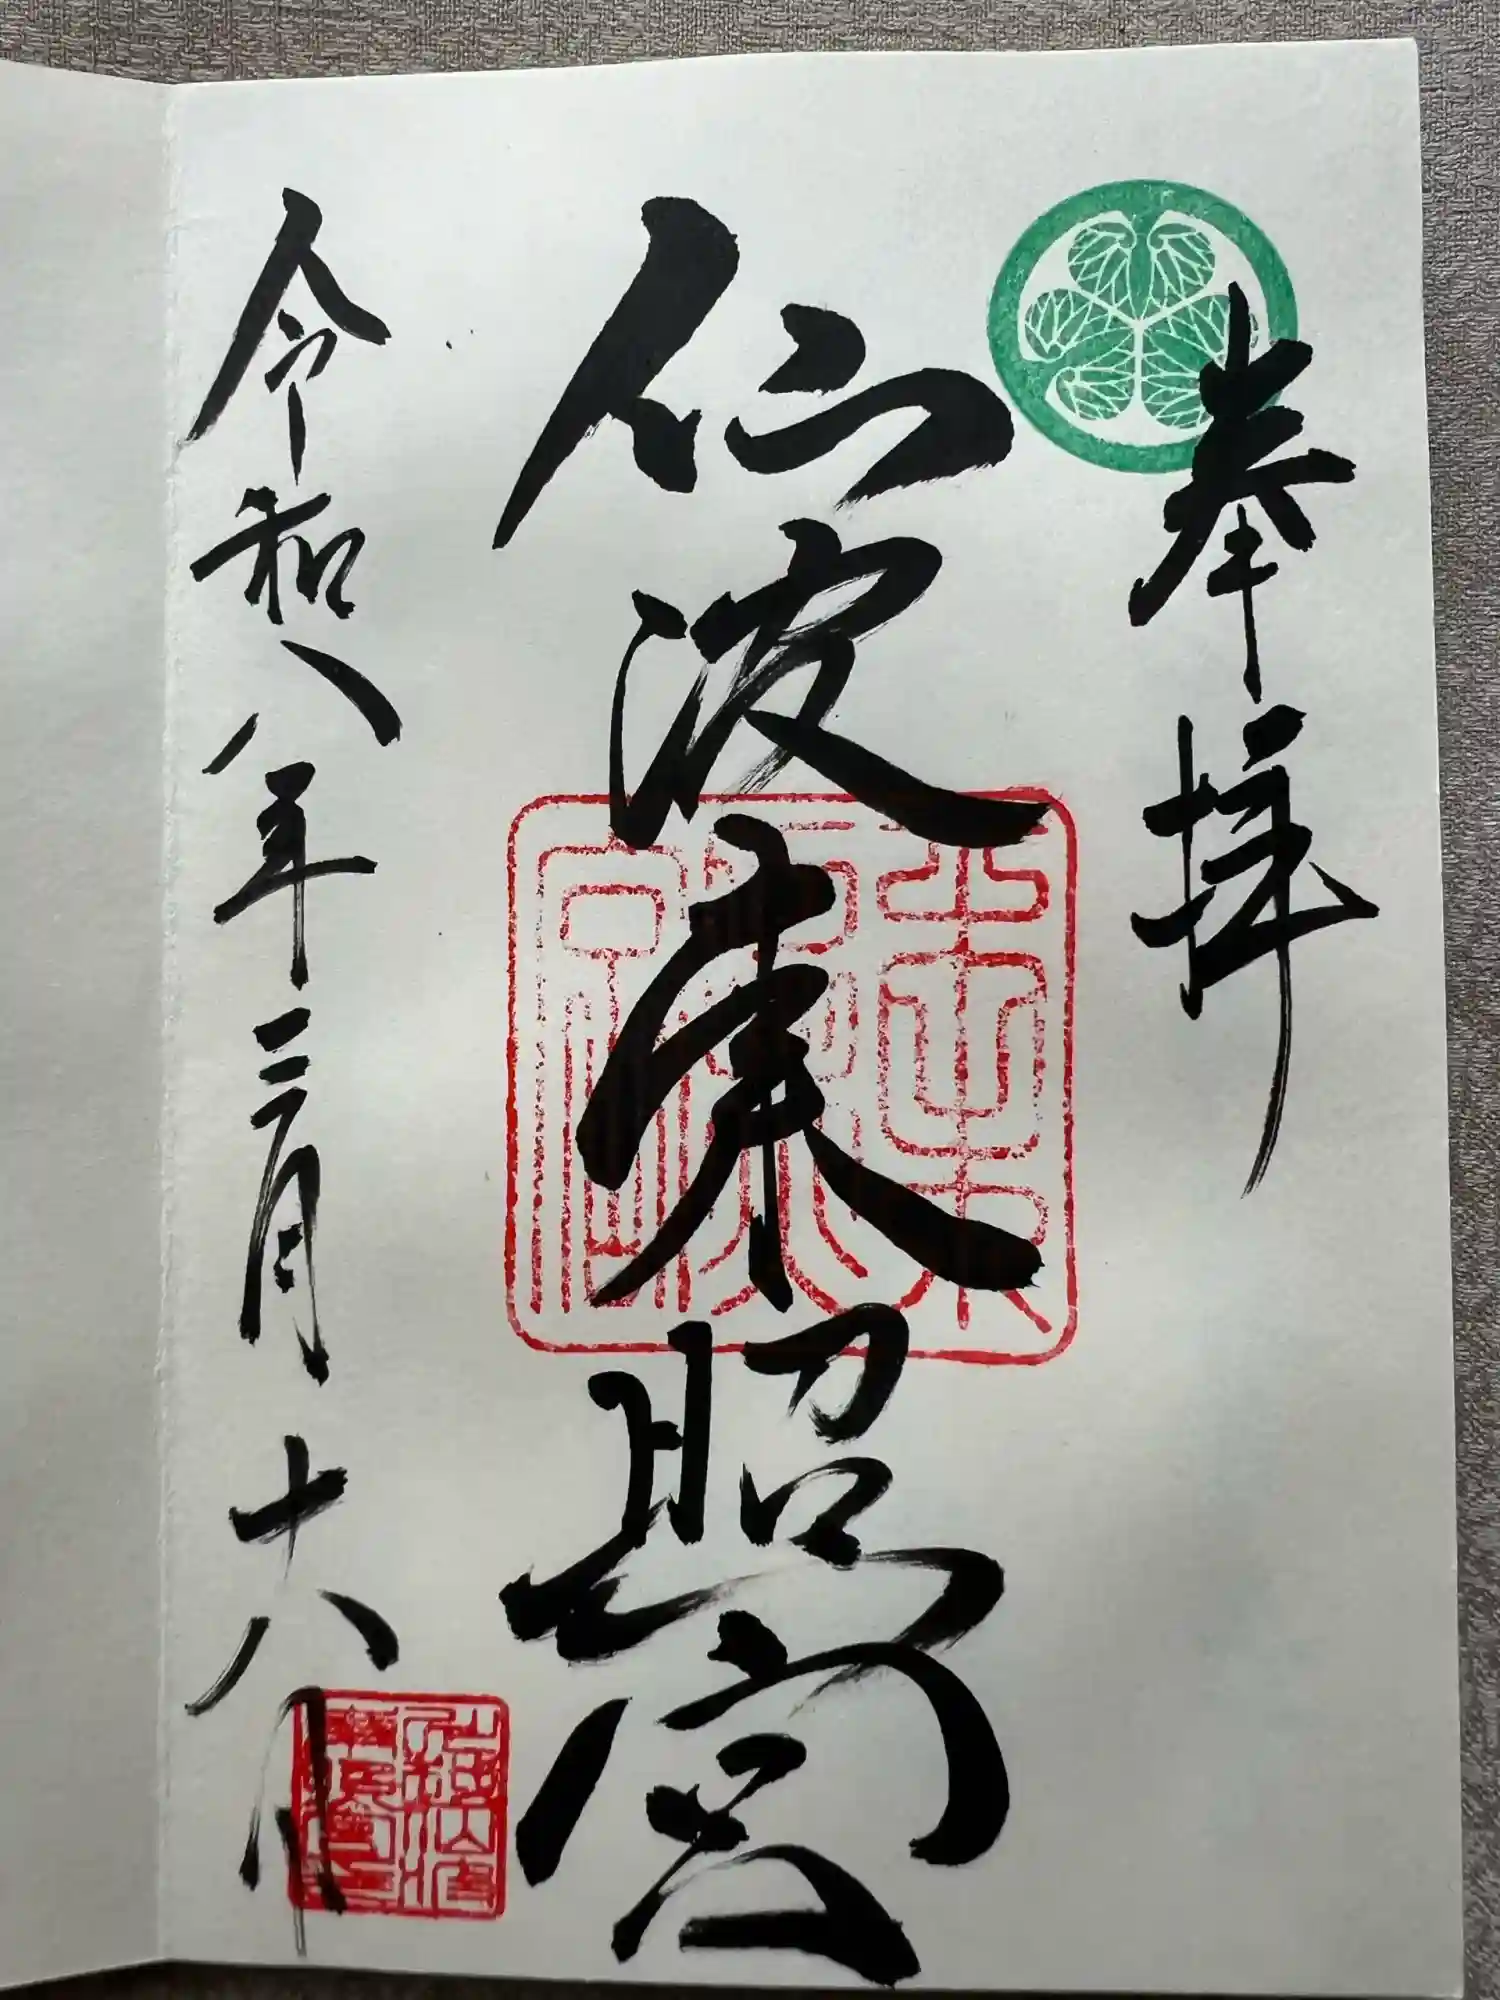 奉拝
仙波東照宮
令和八年二月十八日